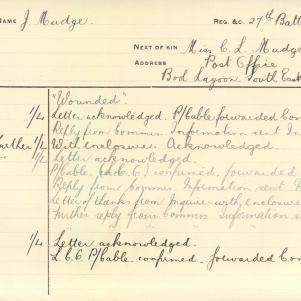 NAME J. Mudge. REG. &C. 27th Batt
NEXT OF KIN Miss C. L. Mudge
ADDRESS Post Office
Bool Lagoon South East
"Wounded"
1/L Letter acknowledged. P/Cable forwarded Com
Reply from Commrs. Information sent In
further 1/L With enclosure. Acknowledged.
1/L Letter acknowledged.
P/Cable confirmed, forwarded
Reply from Commrs. Information sent
Letter of thanks from Inquirer with enclosure
Further reply from Commrs Information s
1/L Letter acknowledged.
L.C.G P/Cable confirmed. forwarded Com